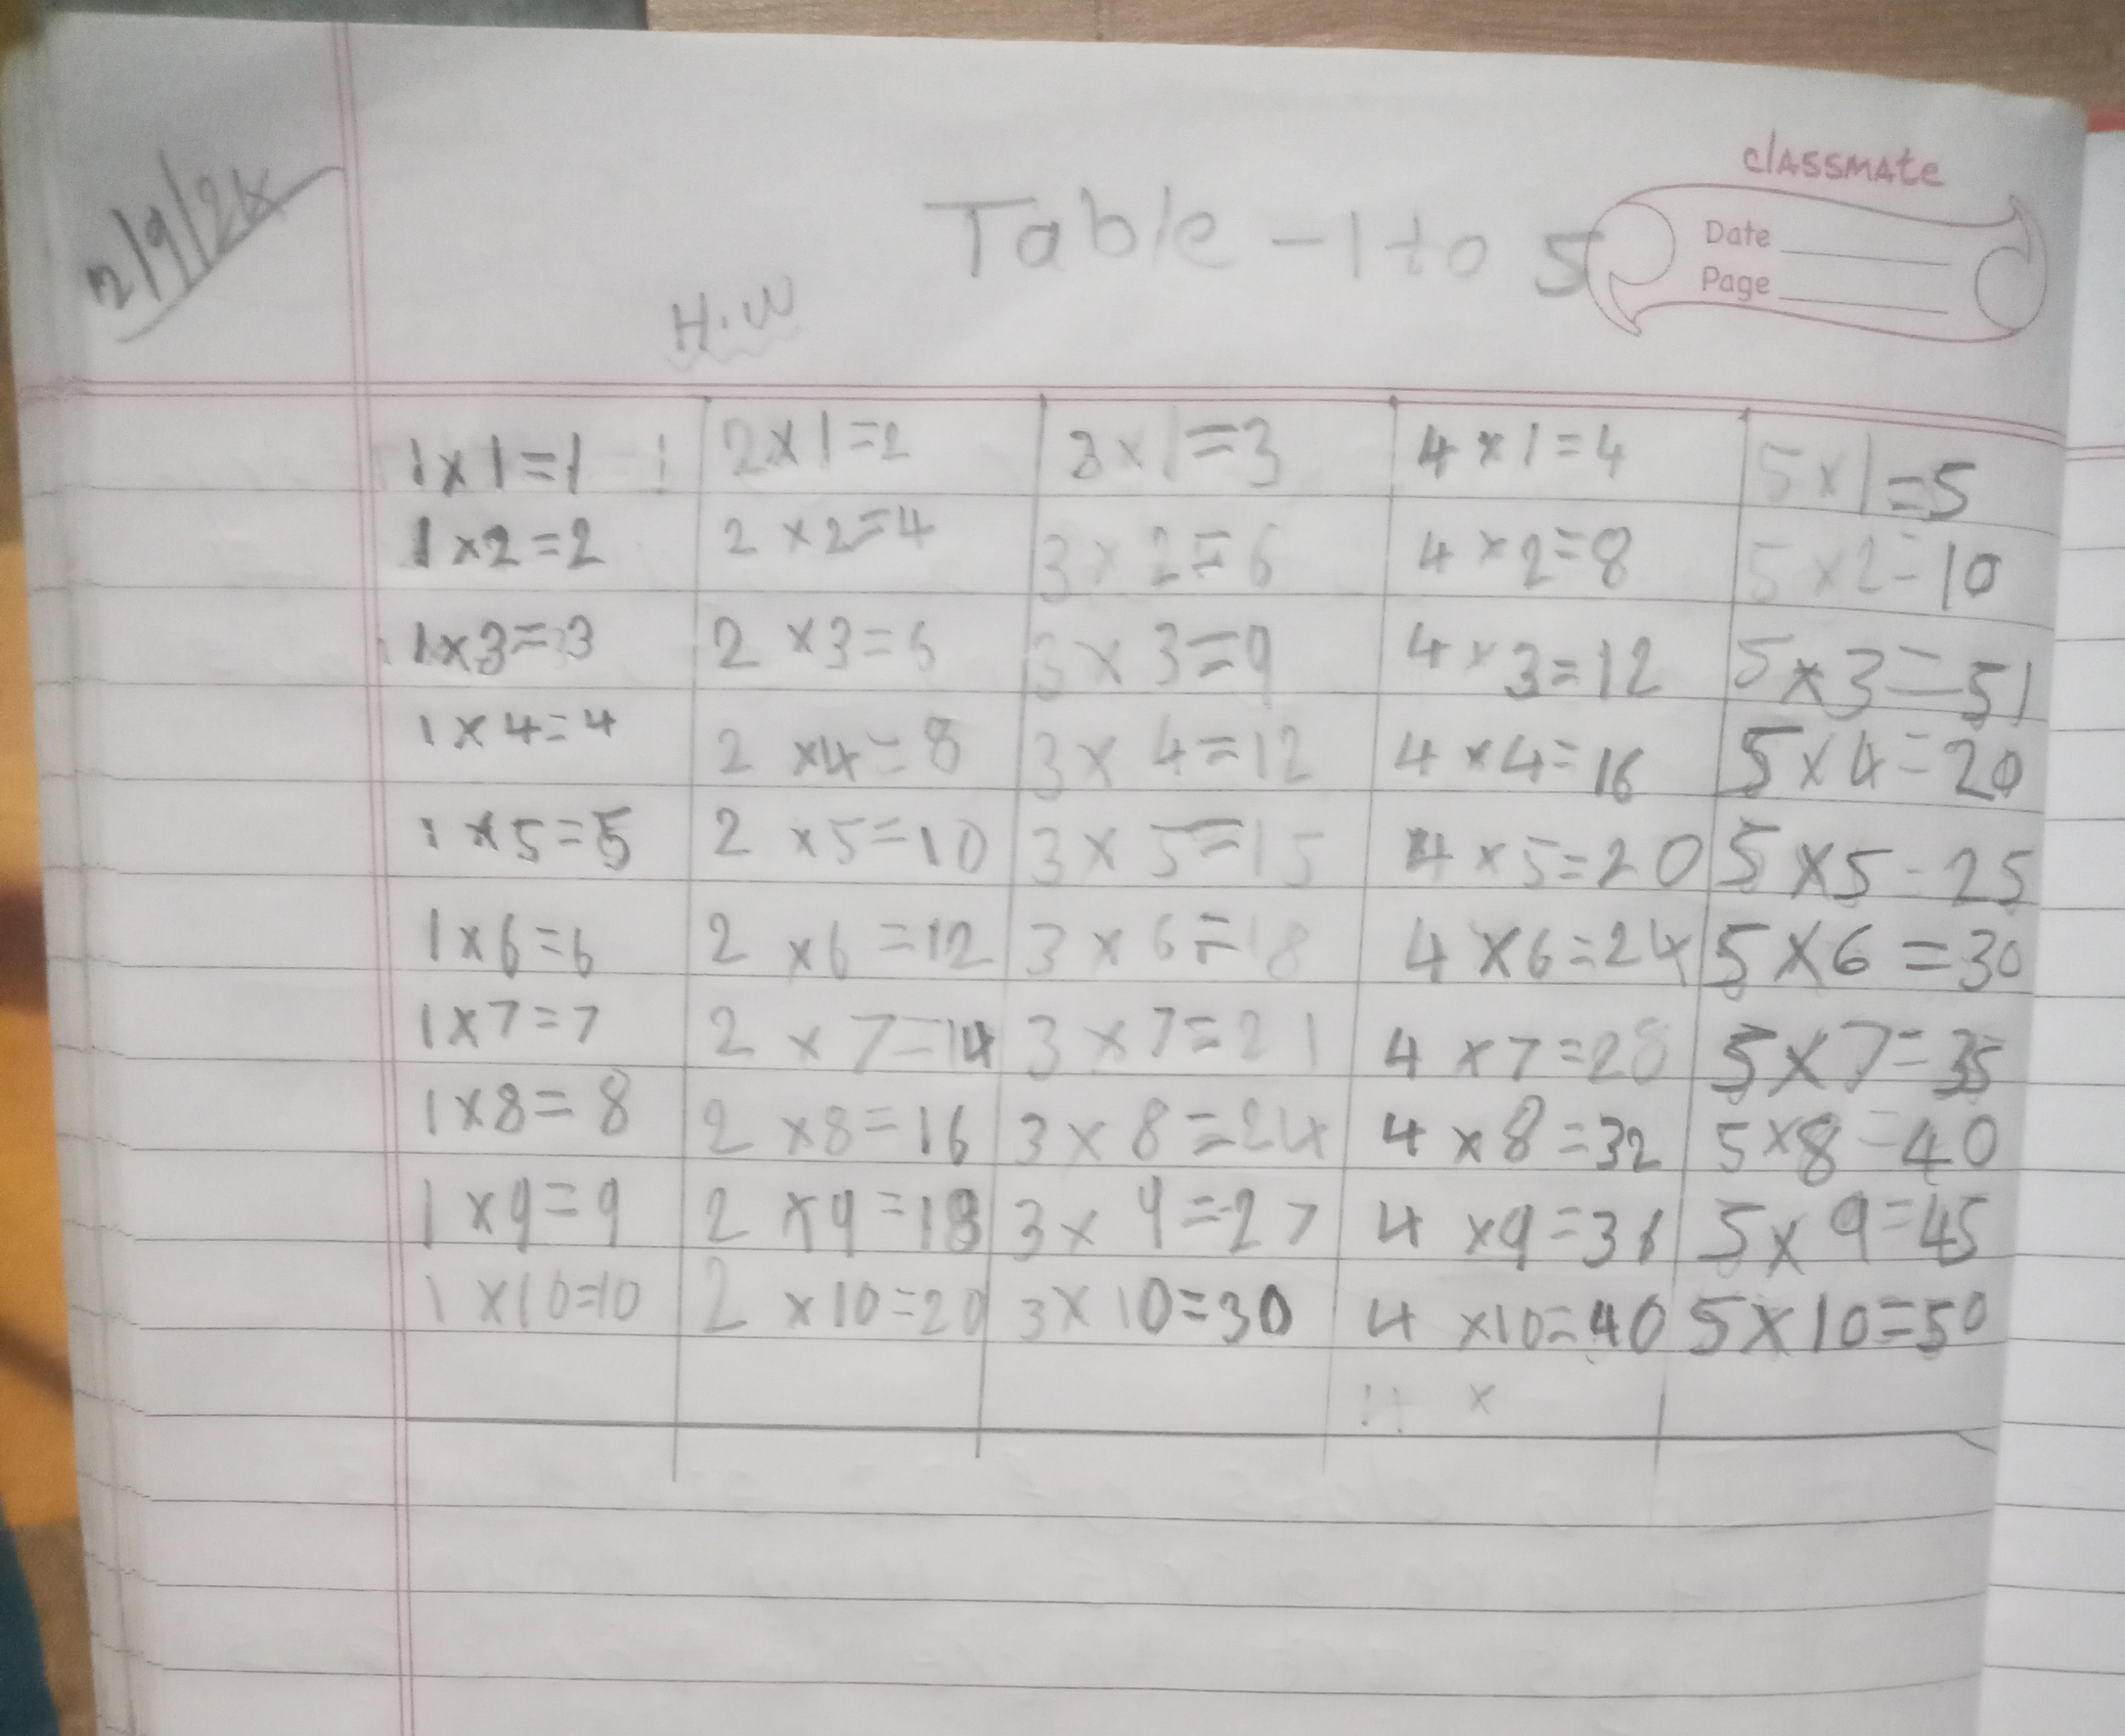 2/9/24
classmate
Table - 1 to 5
Date
Page
H.W
1 x 1 = 1 2 x 1 = 2 3 x 1 = 3 4 x 1 = 4 5 x 1 = 5
1 x 2 = 2 2 x 2 = 4 3 x 2 = 6 4 x 2 = 8 5 x 2 = 10
1 x 3 = 3 2 x 3 = 6 3 x 3 = 9 4 x 3 = 12 5 x 3 = 51
1 x 4 = 4 2 x 4 = 8 3 x 4 = 12 4 x 4 = 16 5 x 4 = 20
1 x 5 = 5 2 x 5 = 10 3 x 5 = 15 4 x 5 = 20 5 x 5 - 25
1 x 6 = 6 2 x 6 = 12 3 x 6 = 18 4 x 6 = 24 5 x 6 = 30
1 x 7 = 7 2 x 7 = 14 3 x 7 = 21 4 x 7 = 28 5 x 7 = 35
1 x 8 = 8 2 x 8 = 16 3 x 8 = 24 4 x 8 = 32 5 x 8 = 40
1 x 9 = 9 2 x 9 = 18 3 x 9 = 27 4 x 9 = 36 5 x 9 = 45
1 x 10 = 10 2 x 10 = 20 3 x 10 = 30 4 x 10 = 40 5 x 10 = 50
4 x